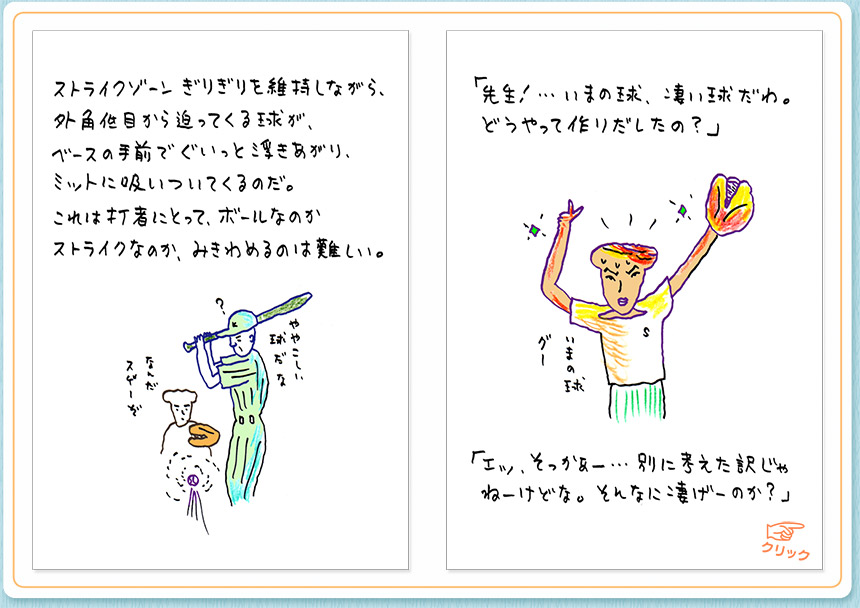 ストライクゾーンぎりぎりを維持しながら、
外角低目から迫ってくる球が、
ベースの手前でぐいっと浮きあがり、
ミットに吸いついてくるのだ。
これは打者にとって、ボールなのか
ストライクなのか、みきわめるのは難しい。
?
ややこしい
球だな
なんだ
スゲーぞ
K
「先生!…いまの球、凄い球だわ。
どうやって作りだしたの?」
いまの球
グー
S
「エッ、そっかぁー…別に考えた訳じゃ
ねーけどな。そんなに凄げーのか?」
クリック